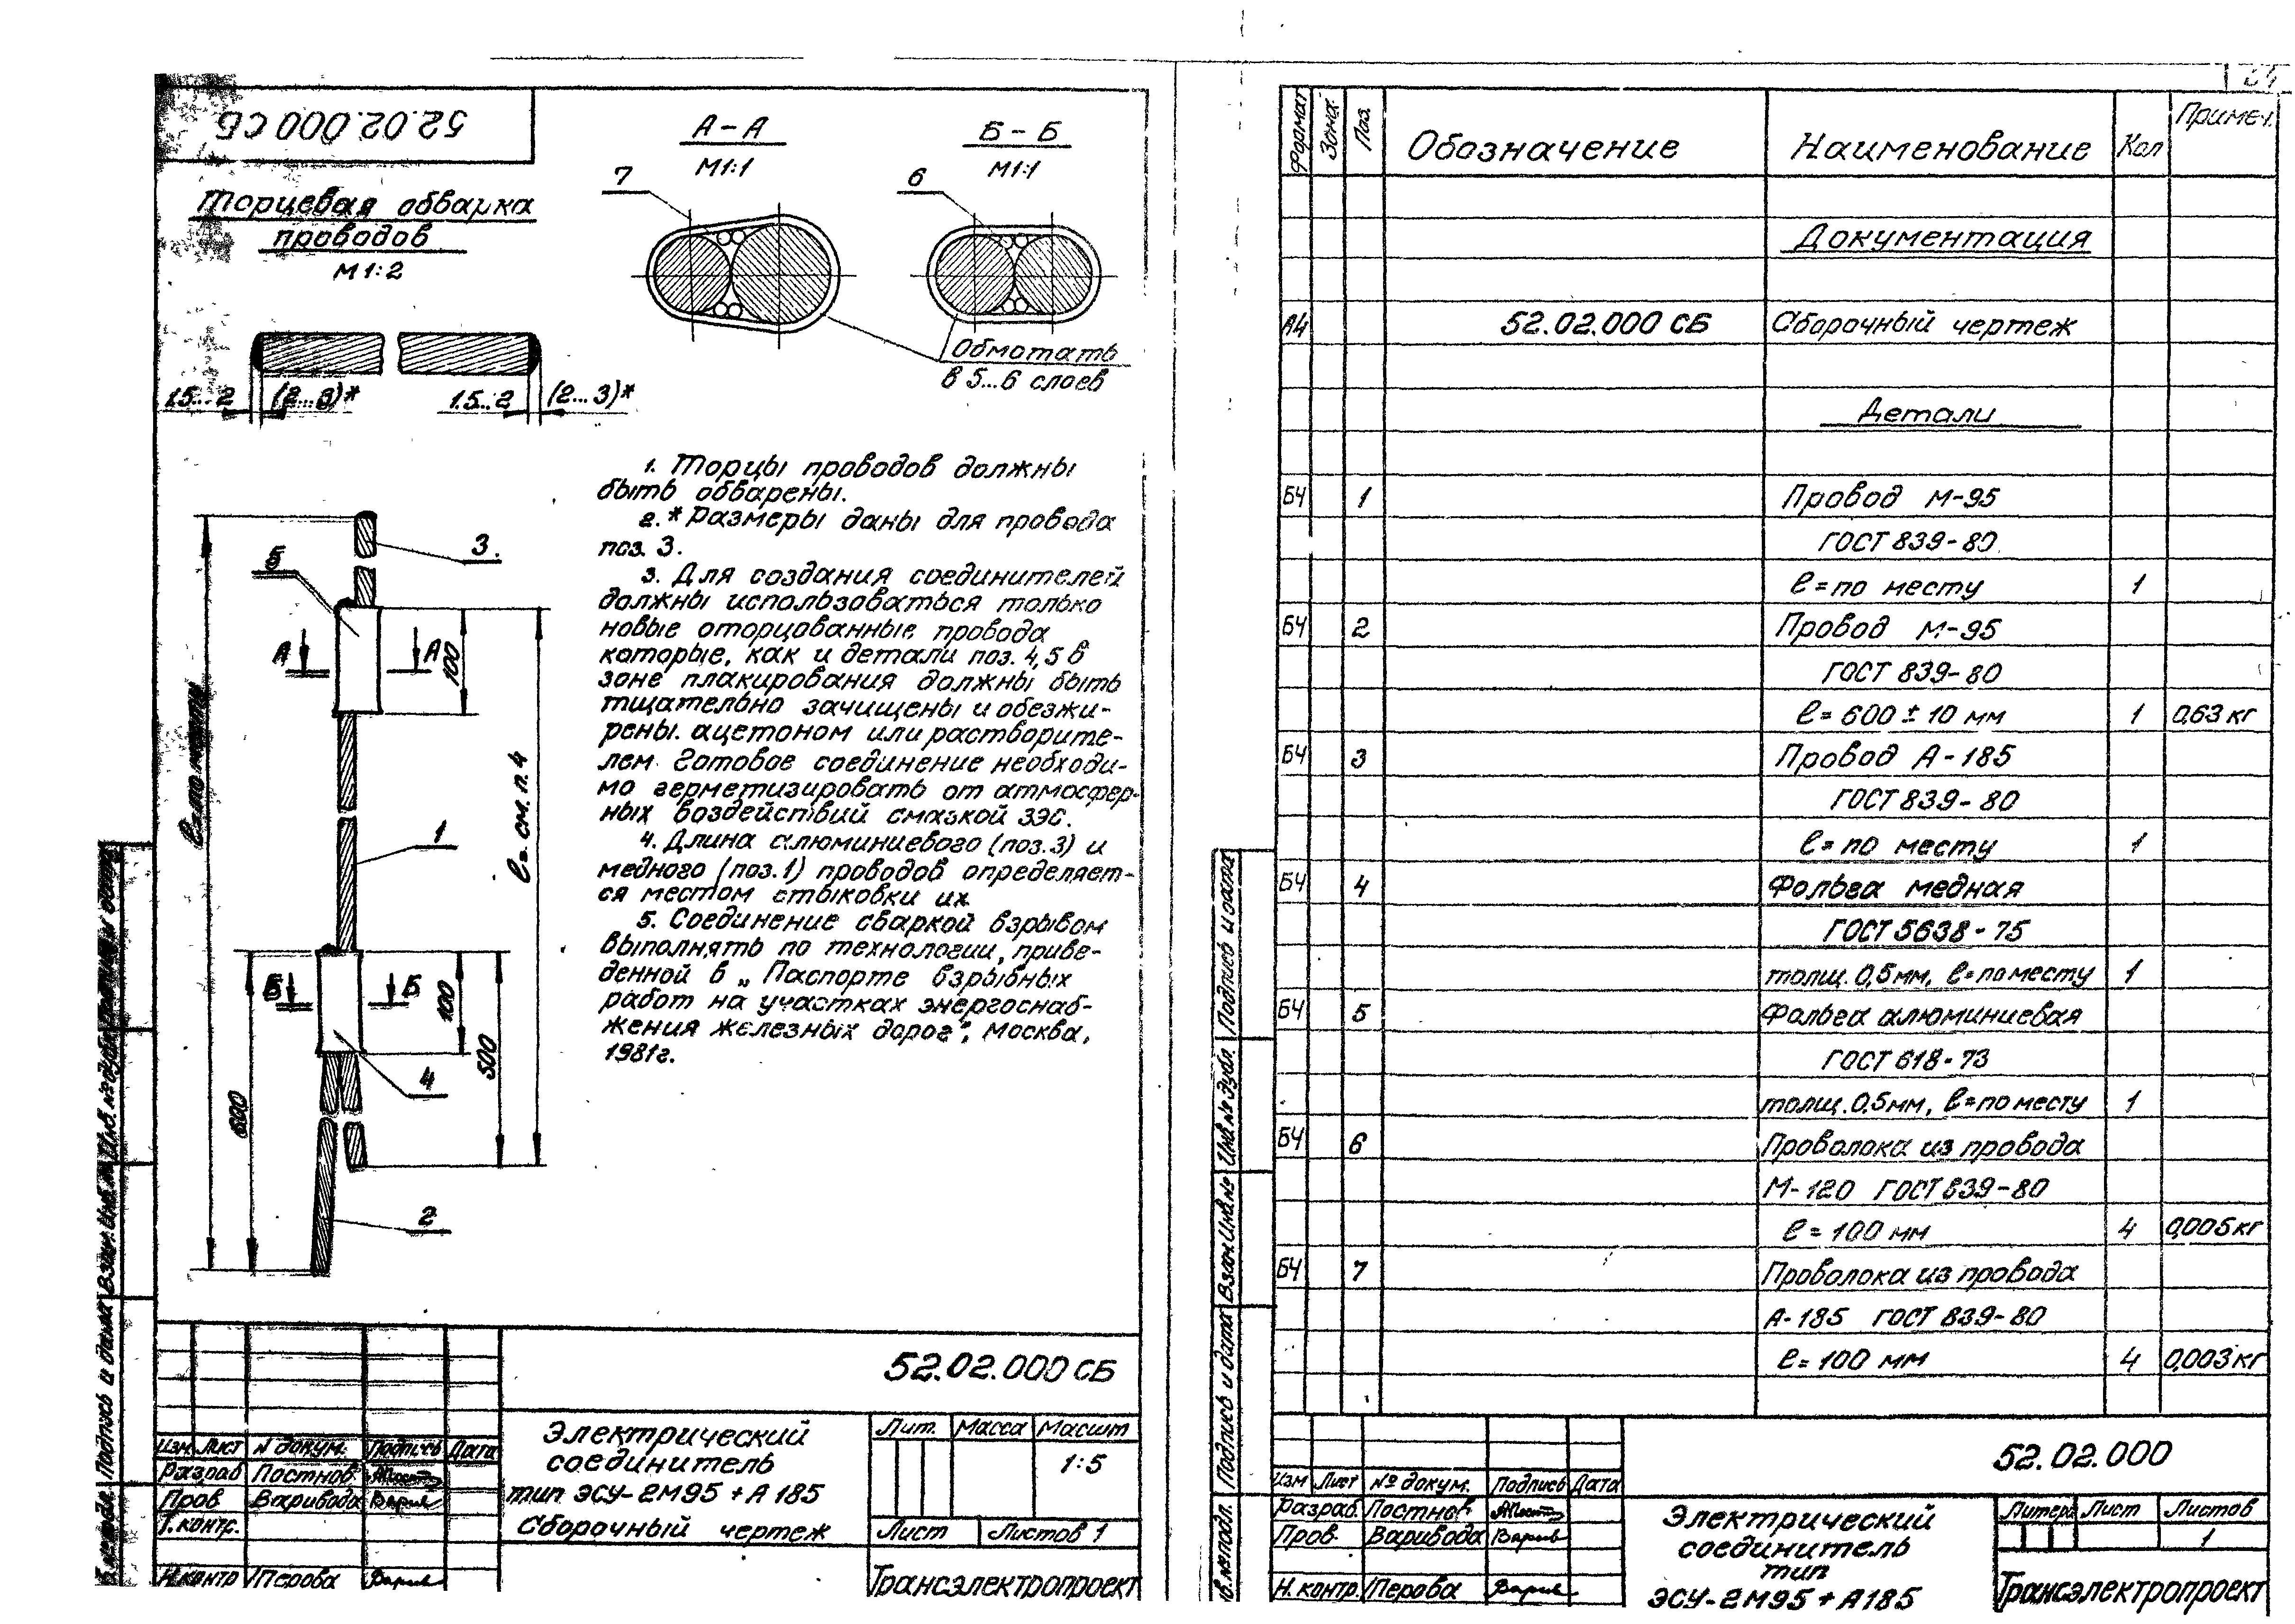 52.02.000 СБ
А – А
М1:1
Б – Б
М1:1
7
6
Торцевая обварка
проводов
М 1:2
Обмотать
в 5...6 слоев
1.5...2 (2...3)* 1.5...2 (2...3)*
1. Торцы проводов должны
быть обварены.
2. * Размеры даны для провода
поз. 3.
3. Для создания соединителей
должны использоваться только
новые оторцованные провода
которые, как и детали поз. 4,5 в
зоне плакирования должны быть
тщательно зачищены и обезжи-
рены. ацетоном или растворите-
лем. Готовое соединение необходи-
мо герметизировать от атмосфер-
ных воздействий смазкой ЗЭС.
4. Длина алюминиевого (поз.3) и
медного (поз.1) проводов определяет-
ся местом стыковки их
5. Соединение сваркой взрывом
выполнять по технологии, приве-
денной в „Паспорте взрывных
работ на участках энергоснаб-
жения железных дорог", Москва,
1981г.
3.
5
А А
100
ℓ=по месту
ℓ= см. п. 4
1
Б Б
100
500
4
600
2
52.02.000 СБ
Изм. Лист N докум. Подпись Дата
Разраб Постнов
Пров Варивода
Т.контр.
Н.контр Перова
Электрический
соединитель
тип ЭСУ-2М95 + А 185
Сборочный чертеж
Лит. Масса Масшт
1:5
Лист Листов 1
Трансэлектропроект
Подпись и дата
Взам. Инв. №
Инв. № дубл.
Подпись и дата
24
Формат Зона Поз. Обозначение Наименование Кол Примеч.
Документация
А4 52.02.000 СБ Сборочный чертеж
Детали
БЧ 1 Провод М-95
ГОСТ 839-80
ℓ = по месту 1
БЧ 2 Провод М-95
ГОСТ 839-80
ℓ = 600 ± 10 мм 1 0,63 кг
БЧ 3 Провод А-185
ГОСТ 839-80
ℓ = по месту 1
БЧ 4 Фольга медная
ГОСТ 5638-75
толщ. 0,5мм, ℓ = по месту 1
БЧ 5 Фольга алюминиевая
ГОСТ 618-73
толщ. 0,5мм, ℓ = по месту 1
БЧ 6 Проволока из провода
М-120 ГОСТ 839-80
ℓ = 100 мм 4 0,005 кг
БЧ 7 Проволока из провода
А-185 ГОСТ 839-80
ℓ = 100 мм 4 0,003 кг
52.02.000
Изм Лист № докум. Подпись Дата
Разраб. Постнов
Пров. Варивода
Н. контр. Перова
Электрический
соединитель
тип
ЭСУ-2М95 + А185
Литера Лист Листов
1
Трансэлектропроект
Подпись и дата
Инв. № дубл.
Взам Инв. №
Подпись и дата